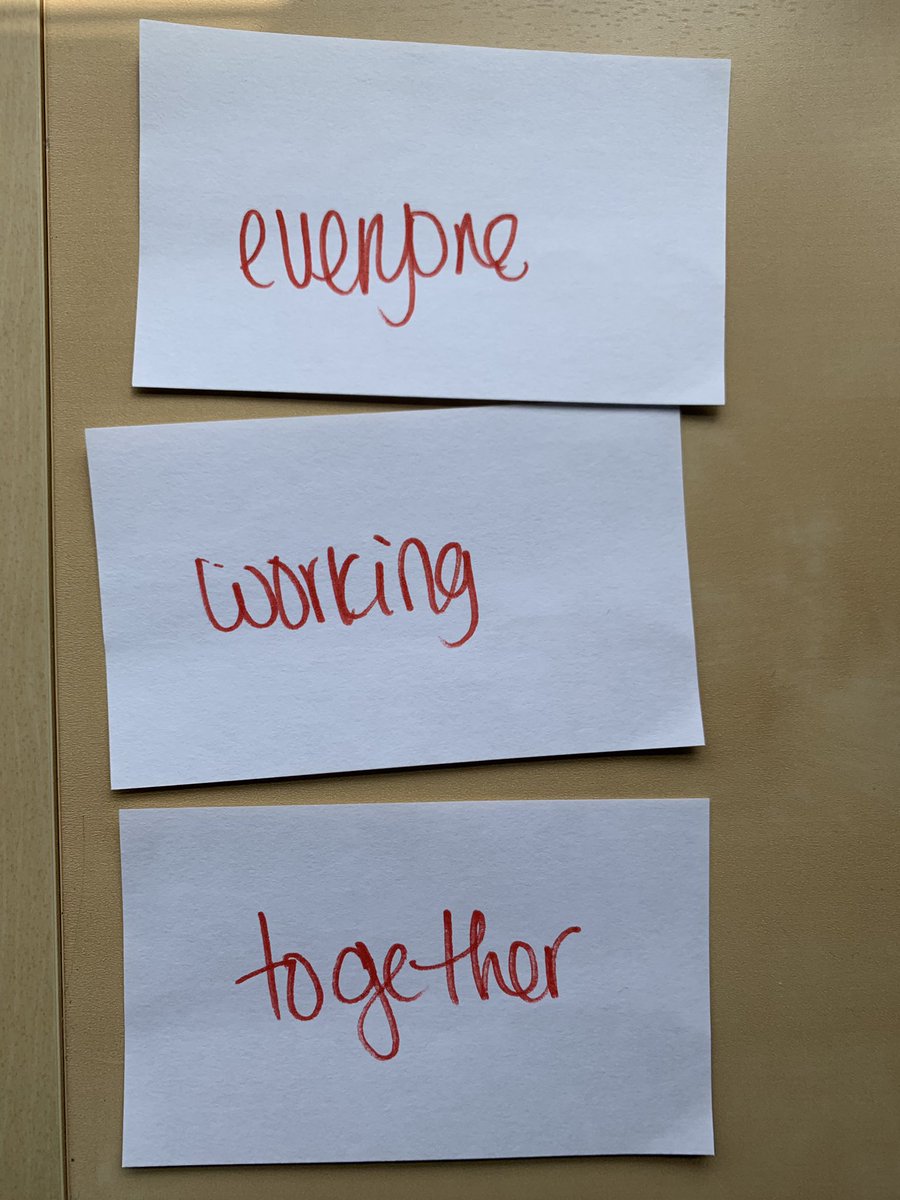 everyone
working
together